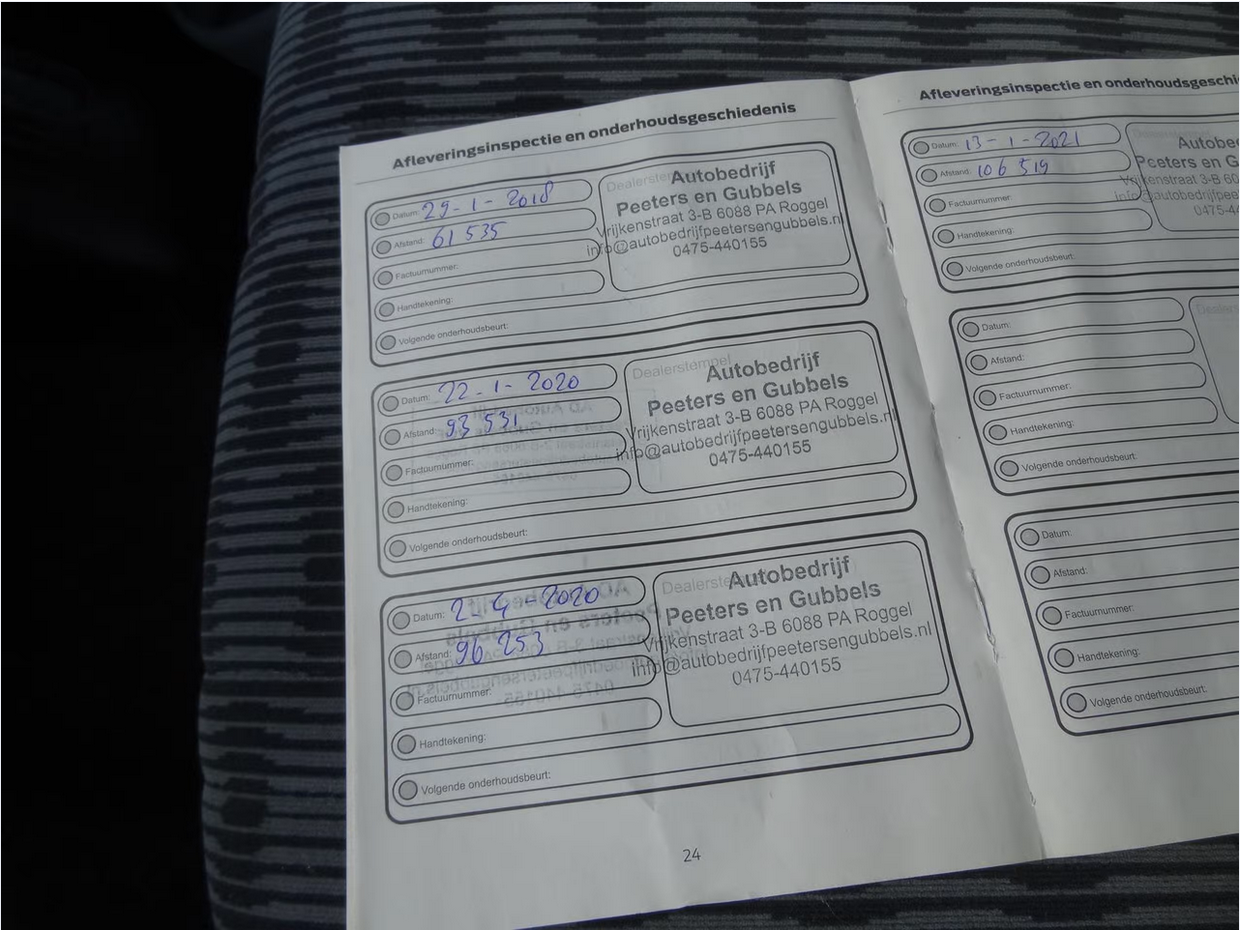 Afleveringsinspectie en onderhoudsgeschiedenis
Datum: 29-1-2018
Afstand: 61 535
Factuurnummer:
Handtekening:
Volgende onderhoudsbeurt:
Autobedrijf
Peeters en Gubbels
Vrijkenstraat 3-B 6088 PA Roggel
info@autobedrijfpeetersengubbels.nl
0475-440155
Datum: 22-1-2020
Afstand: 93 531
Factuurnummer:
Handtekening:
Volgende onderhoudsbeurt:
Dealerstempel
Autobedrijf
Peeters en Gubbels
Vrijkenstraat 3-B 6088 PA Roggel
info@autobedrijfpeetersengubbels.nl
0475-440155
Datum: 2-4-2020
Afstand: 96 253
Factuurnummer:
Handtekening:
Volgende onderhoudsbeurt:
Autobedrijf
Peeters en Gubbels
Vrijkenstraat 3-B 6088 PA Roggel
info@autobedrijfpeetersengubbels.nl
0475-440155
24
Afleveringsinspectie en onderhoudsgeschi
Datum: 13-1-2021
Afstand: 106 519
Factuurnummer:
Handtekening:
Volgende onderhoudsbeurt:
Autobe
Peeters en G
Vrijkenstraat 3-B 60
info@autobedrijfpee
0475-44
Datum:
Afstand:
Factuurnummer:
Handtekening:
Volgende onderhoudsbeurt:
Datum:
Afstand:
Factuurnummer:
Handtekening:
Volgende onderhoudsbeurt: